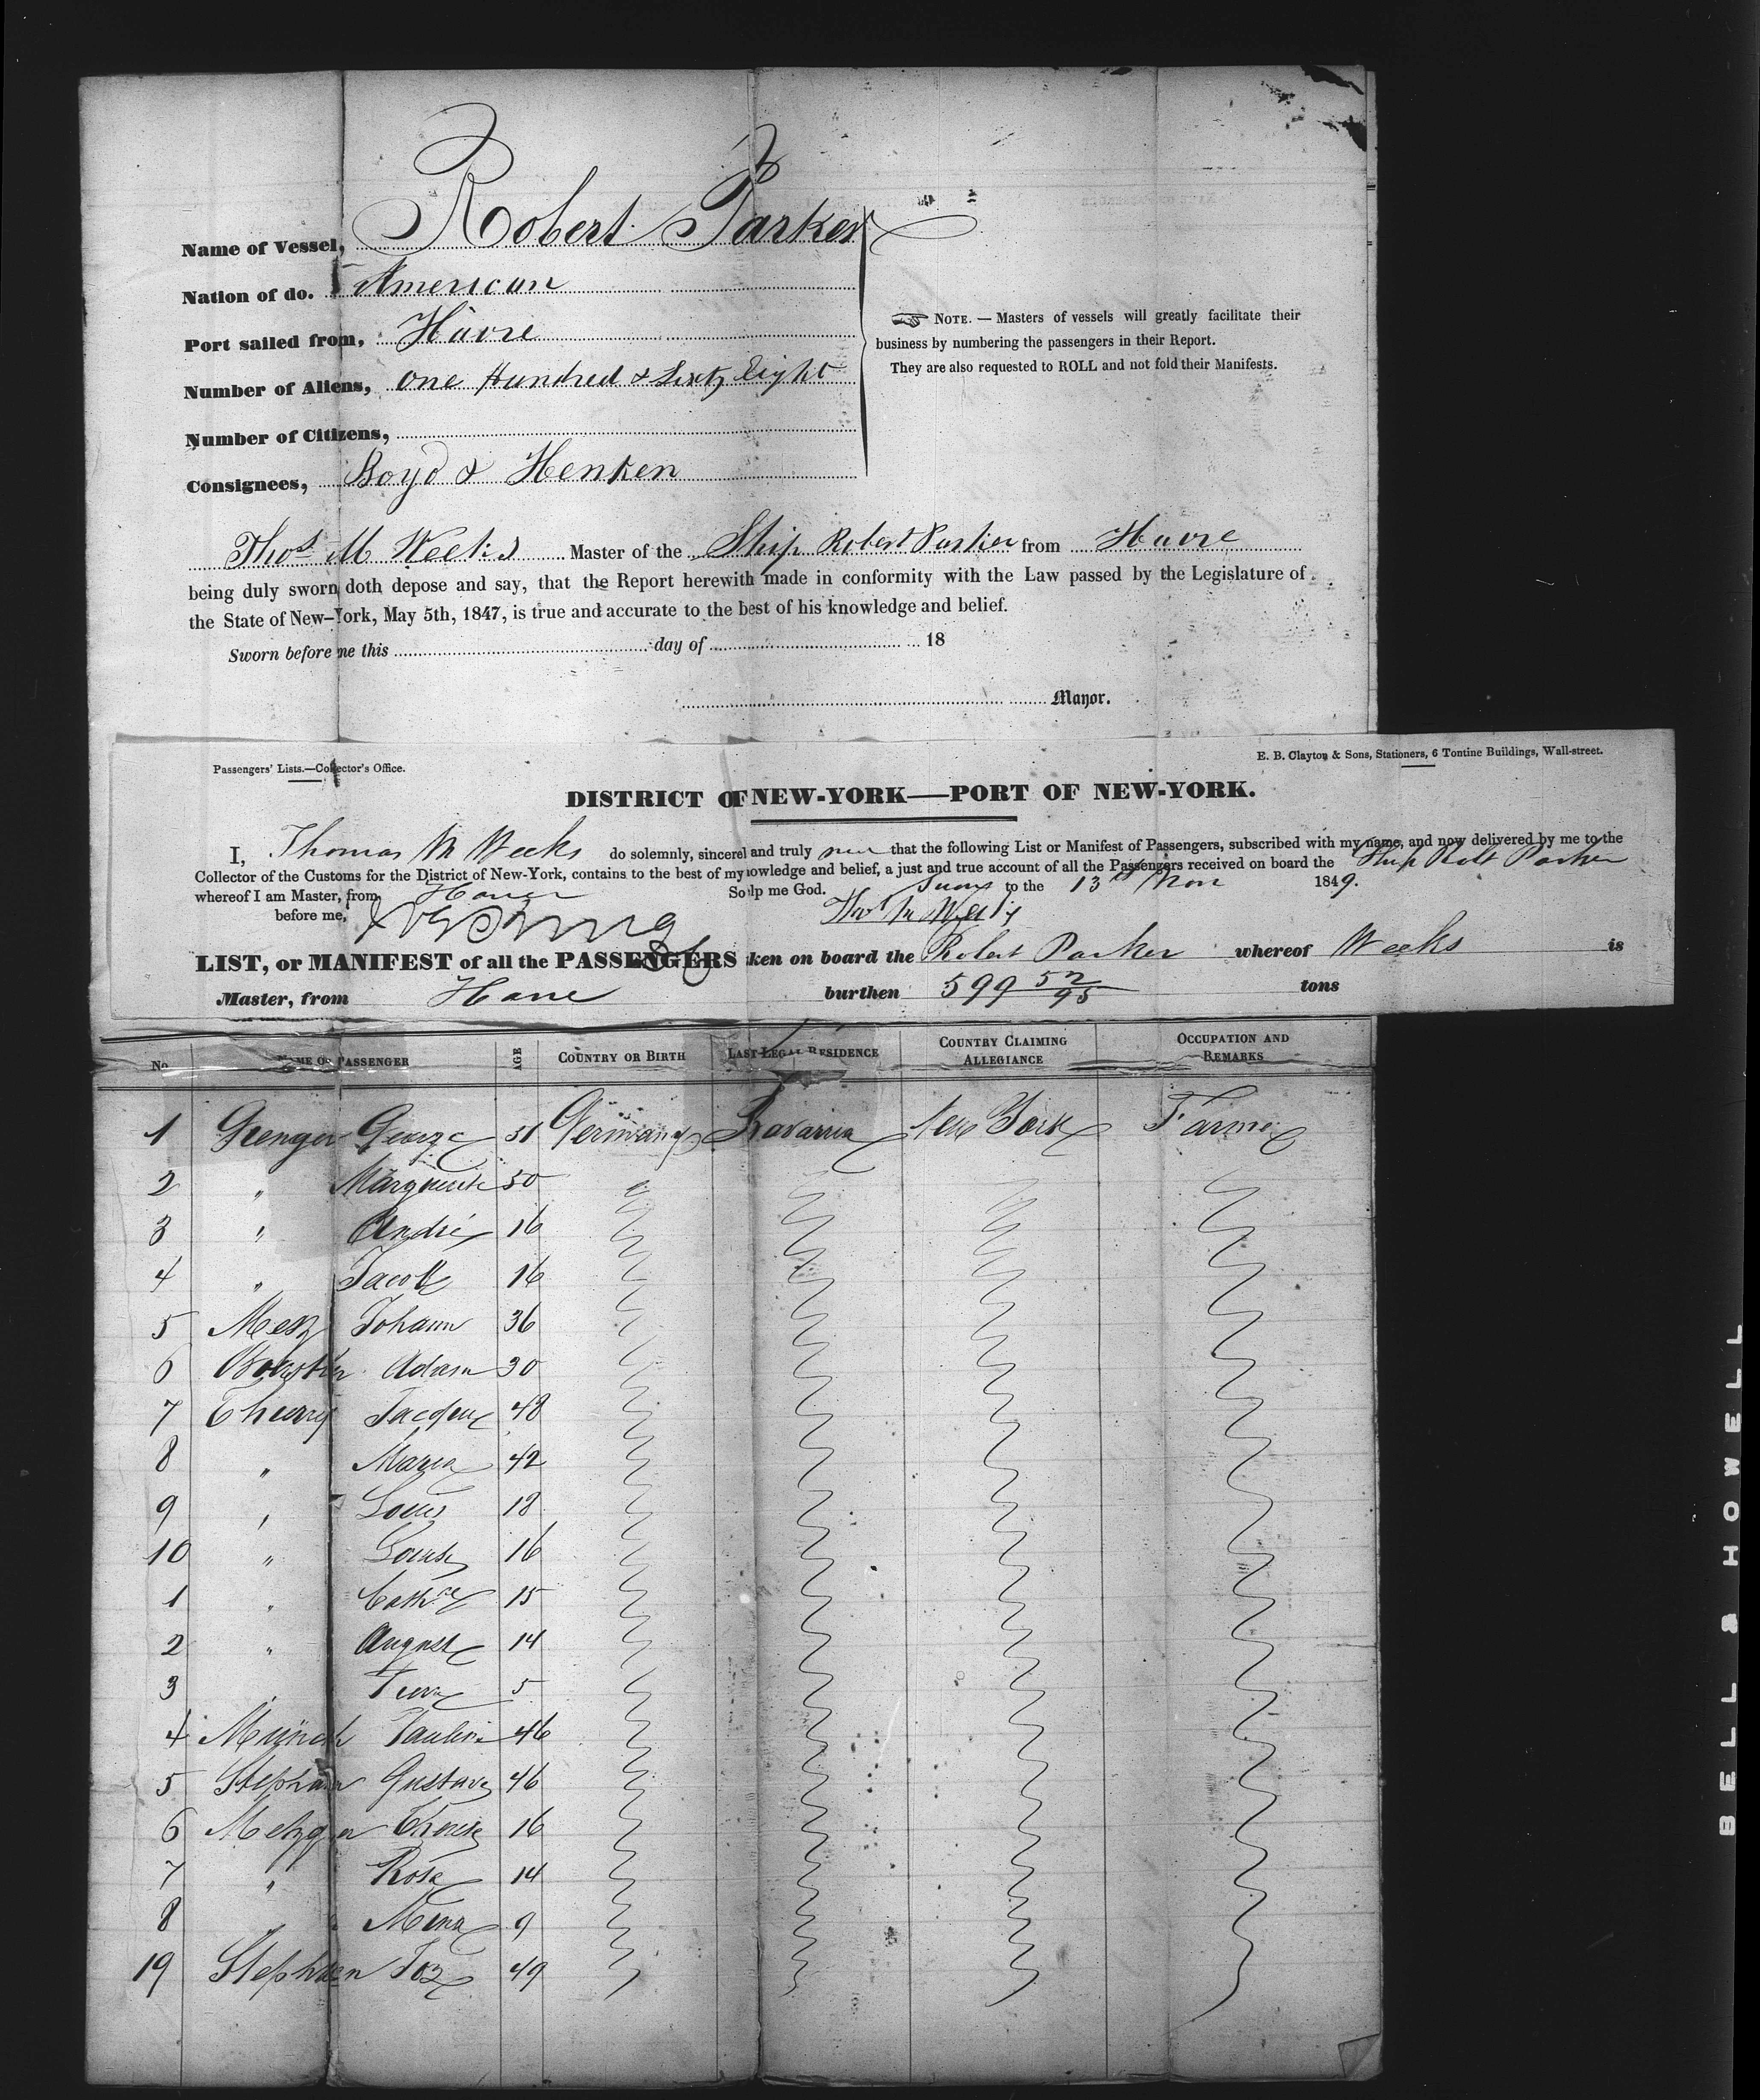 Name of Vessel, Robert Parker
Nation of do. American
Port sailed from, Havre
Number of Aliens, One Hundred & Sixty Eight
Number of Citizens,
Consignees, Boyd & Henken
NOTE. — Masters of vessels will greatly facilitate their
business by numbering the passengers in their Report.
They are also requested to ROLL and not fold their Manifests.
Thos M Weeks Master of the Ship Robert Parker from Havre
being duly sworn doth depose and say, that the Report herewith made in conformity with the Law passed by the Legislature of
the State of New-York, May 5th, 1847, is true and accurate to the best of his knowledge and belief.
Sworn before me this day of 18
Mayor.
Passengers' Lists.—Collector's Office.
E. B. Clayton & Sons, Stationers, 6 Tontine Buildings, Wall-street.
DISTRICT OF NEW-YORK—PORT OF NEW-YORK.
I, Thomas M Weeks do solemnly, sincerel and truly that the following List or Manifest of Passengers, subscribed with my name, and now delivered by me to the
Collector of the Customs for the District of New-York, contains to the best of my owledge and belief, a just and true account of all the Passengers received on board the Ship Robt Parker
whereof I am Master, from Havre So lp me God. Sworn to the 13th Nov 1849.
before me, Thos M Weeks
LIST, or MANIFEST of all the PASSENGERS ken on board the Robert Parker whereof Weeks is
Master, from Havre burthen 599 52/95 tons
No NAME OF PASSENGER AGE COUNTRY OF BIRTH LAST LEGAL RESIDENCE COUNTRY CLAIMING ALLEGIANCE OCCUPATION AND REMARKS
1 George 51 Germany Bavaria New York Farmer
2 " Marguerite 50
3 " André 16
4 " Jacob 16
5 Metz Johann 36
6 Adam 30
7 Thierry Jacque 48
8 " Maria 42
9 " Louis 18
10 " Louise 16
1 " Cathne 15
2 " August 14
3 " 5
4 Münch Pauline 46
5 Stephan Gustave 46
6 Metzger Therese 16
7 " Rosa 14
8 " Mina 9
19 Stephan Joz 49
BELL & HOWELL